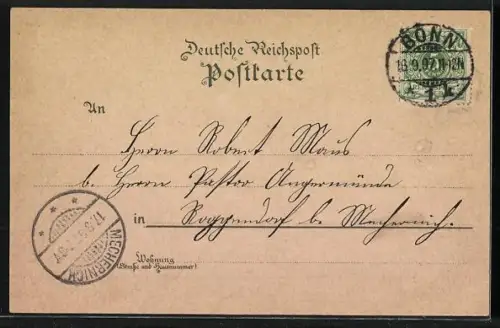 Deutsche Reichspost
Postkarte
BONN
16.9.97.11-12N
* 1 k
An
Herrn Robert Maus
b. Herrn Pastor Angermünde
in Roggendorf b. Mechernich.
Wohnung
(Straße und Hausnummer)
MECHERNICH